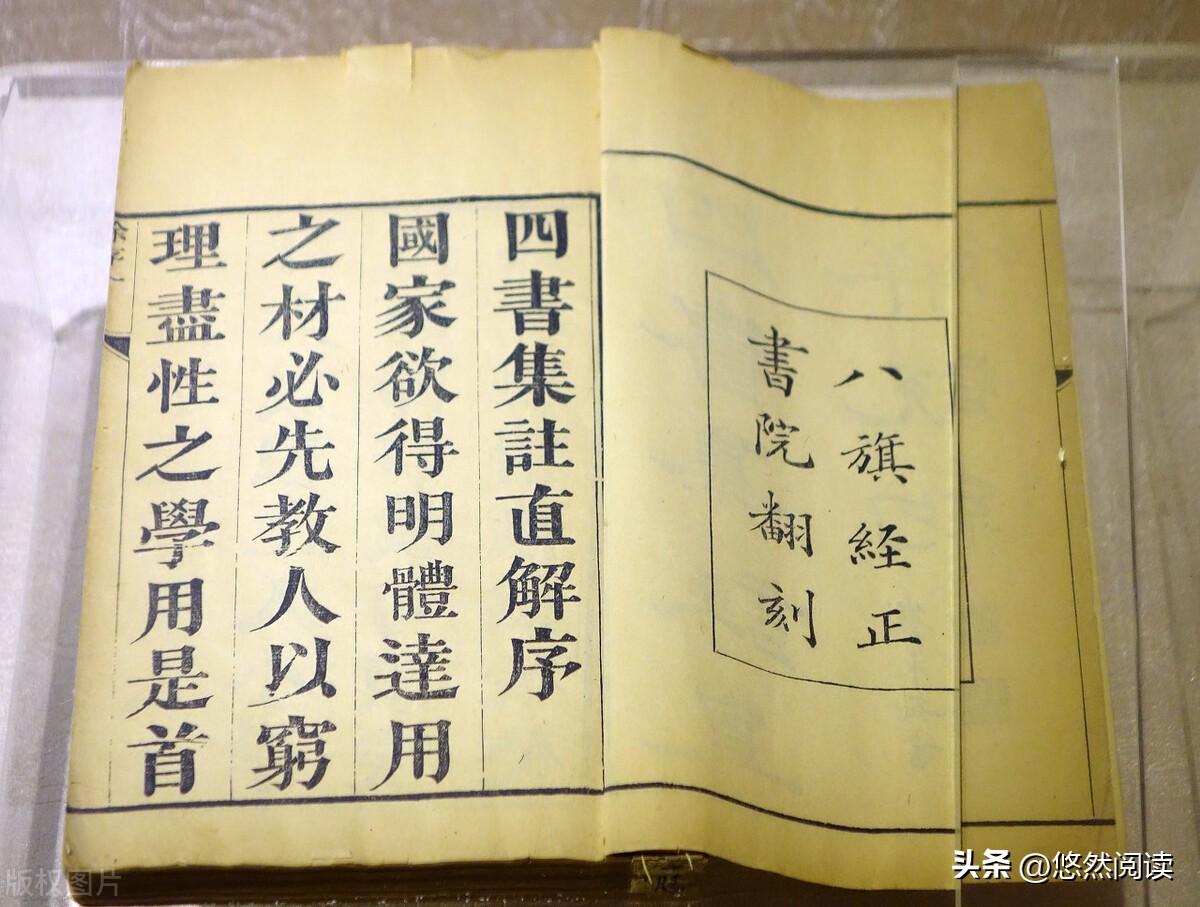 八旗経正
書院翻刻
四書集註直解序
國家欲得明體達用
之材必先教人以窮
理盡性之學用是首
头条 @悠然阅读
版权图片